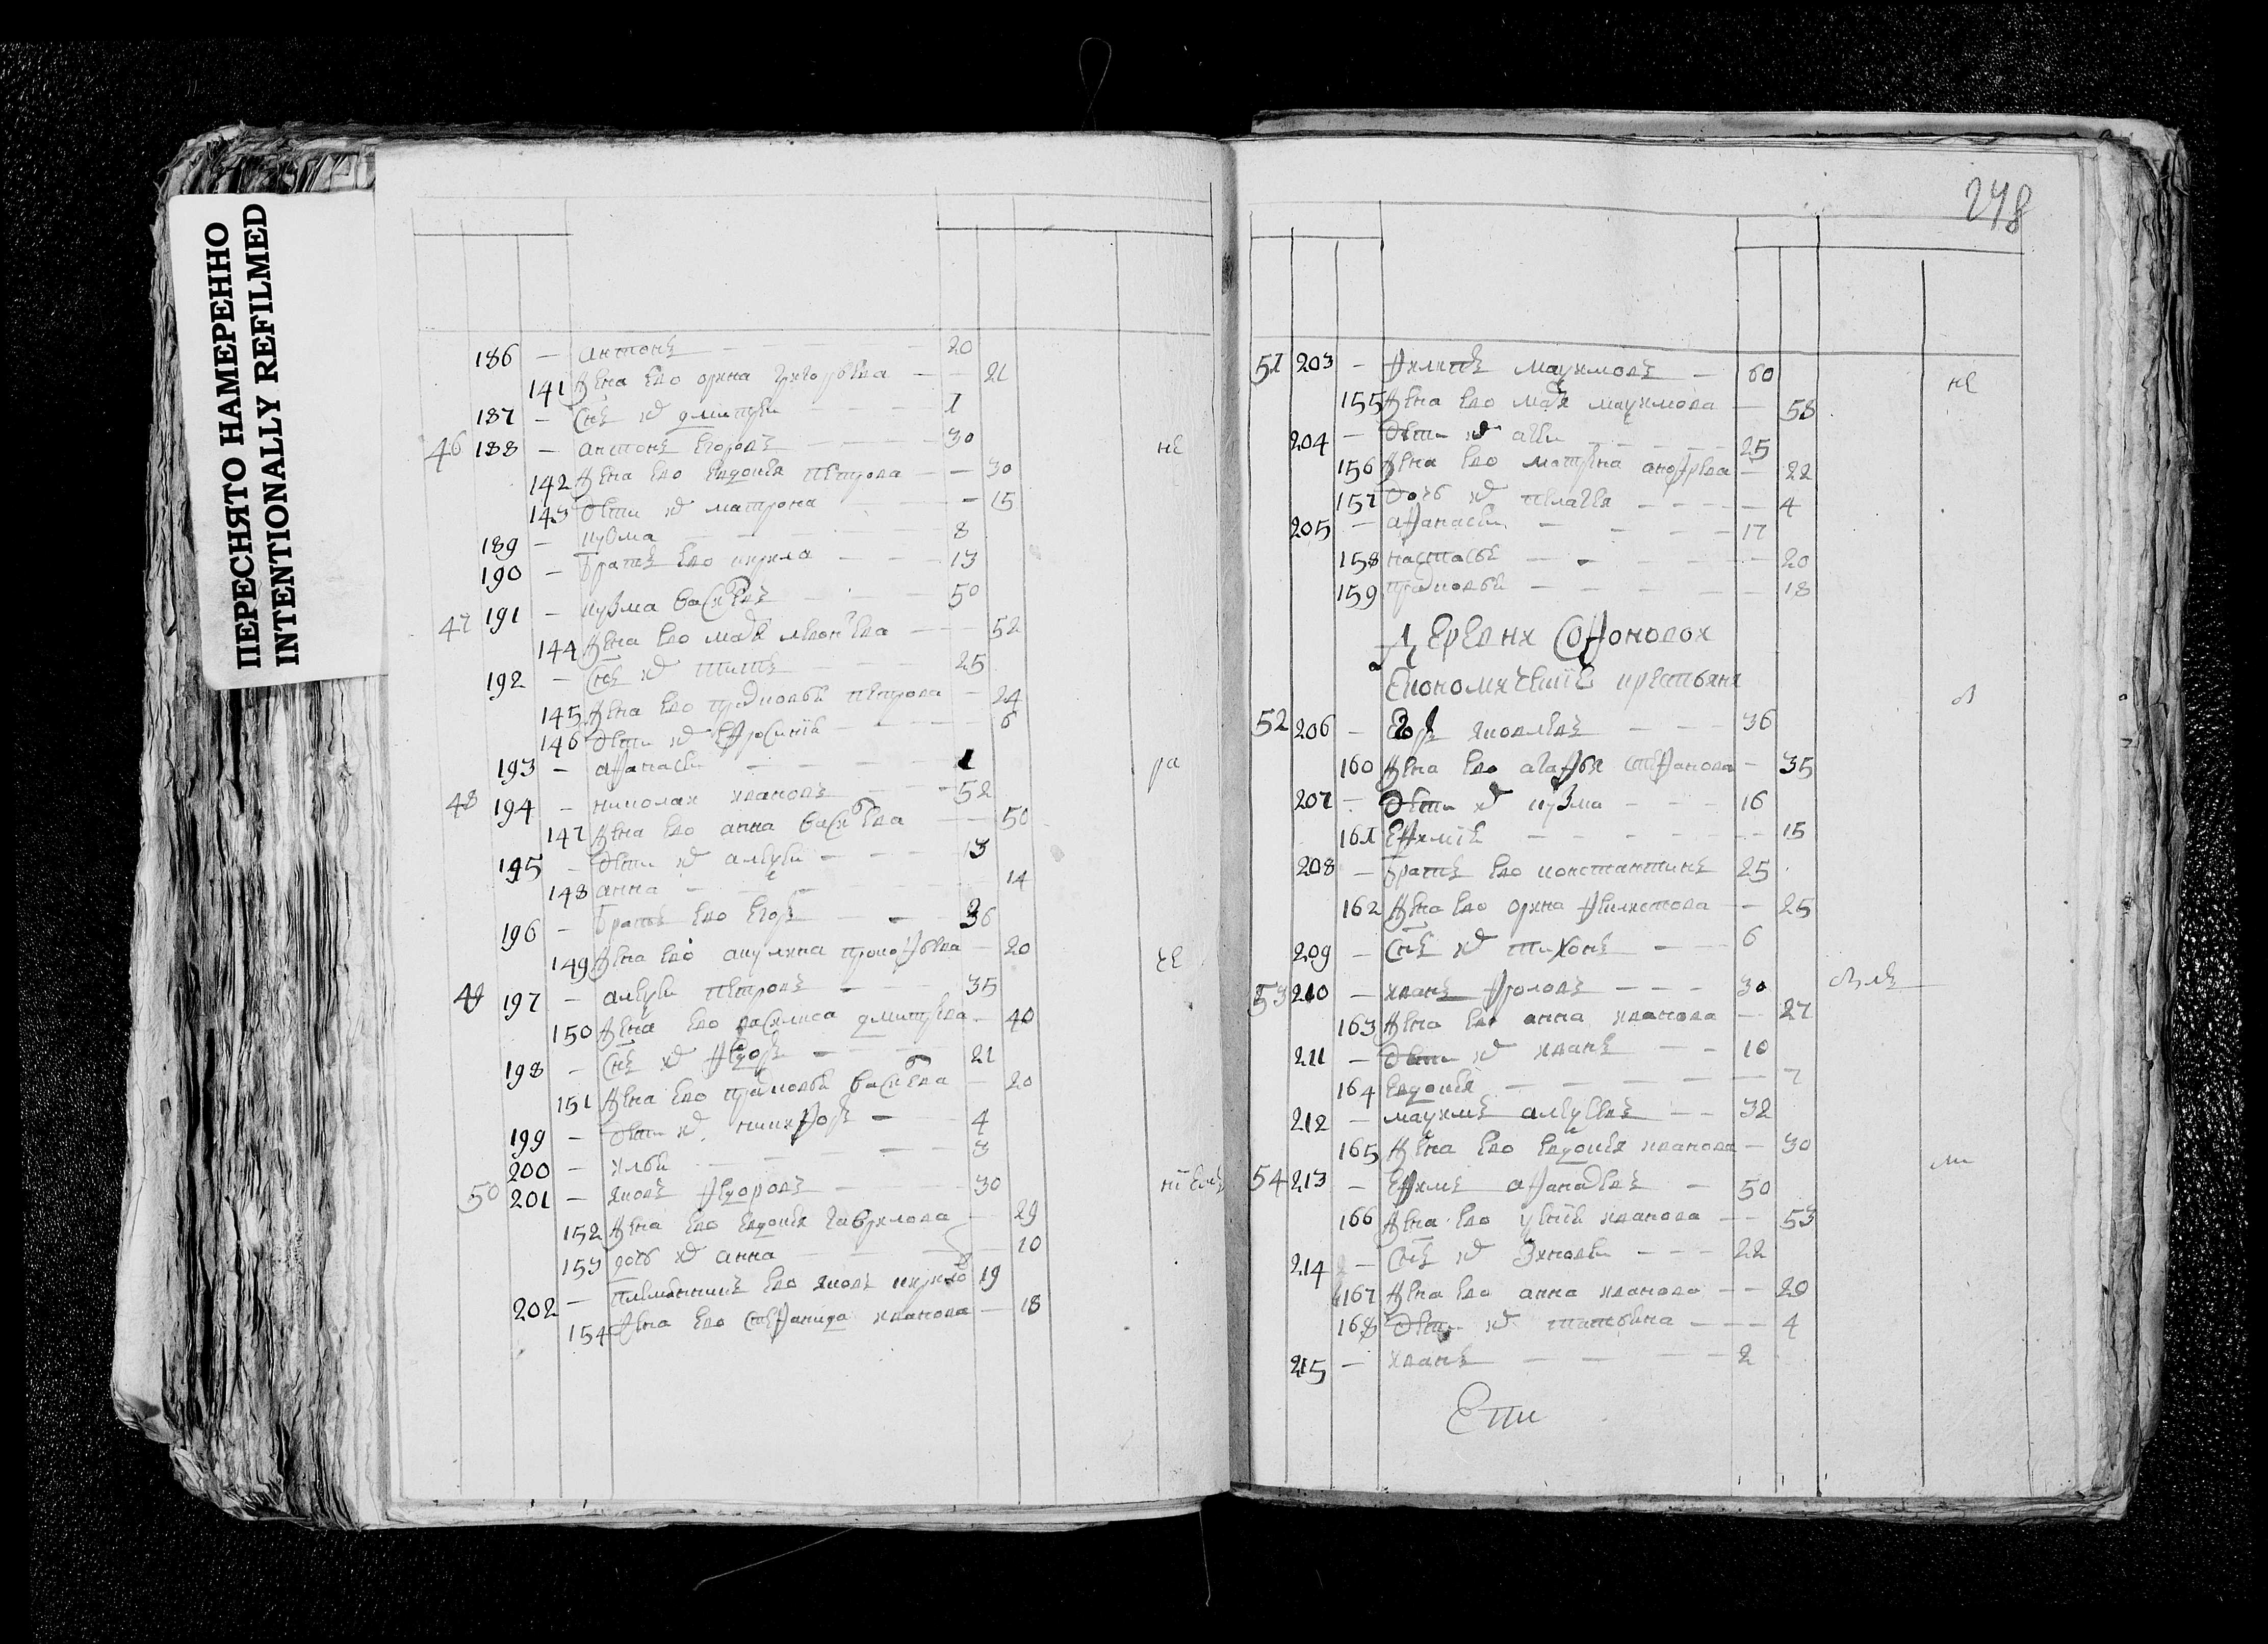 ПЕРЕСНЯТО НАМЕРЕННО
INTENTIONALLY REFILMED
186 — антонъ — 20
141 жена ево орина григорьева — 21
187 — снъ их дмитреи 1
46 188 — антонъ егоровъ — 30 не
142 жена ево евдокея петрова — 30
143 дети их матрона — 15
189 — кузма — 8
190 — братъ ево кирила — 13
47 191 — кузма васильевъ — 50
144 жена ево марья леонтьева — 52
192 — снъ их титъ — 25
145 жена ево прасковья петрова — 24
146 дети их ефросиния — 6
193 — афанасеи — 1 ра
48 194 — николаи иванов — 52
147 жена ево анна васильева — 50
195 — дети их алексеи — 13
148 анна — 14
196 — братъ ево егоръ — 36
149 жена ево акулина прокофьева — 20 че
49 197 — алексеи петровъ — 35
150 жена ево василиса дмитрева — 40
198 — снъ их федоръ — 21
151 жена ево прасковья васильева — 20
199 — дети их никифоръ — 4
200 — илья — 3
50 201 — яковъ федоровъ — 30
152 жена ево евдокея гаврилова — 29
153 дочь их анна — 10
202 — племянникъ ево яковъ кирило 19
154 жена ево стефанида иванова — 18
248
51 203 — филипъ максимовъ — 60 не
155 жена ево марья максимова — 58
204 — дети их — 25
156 жена ево матрена андреева — 22
157 дочь их пелагея — 4
205 — афанасеи — 17
158 настасья — 20
159 прасковья — 18
Деревня Софонова
Економические крестьяня
52 206 — Егоръ яковлевъ — 36
160 жена ево агафья стефанова — 35
207 — дети их кузма — 16
161 ефимия — 15
208 — братъ ево константинъ 25
162 жена ево орина феклистова — 25
209 — снъ их тихонъ — 6
53 210 — иванъ фроловъ — 30
163 жена ево анна иванова — 27
211 — дети их иванъ — 10
164 евдокея — 7
212 — максимъ алексеевъ — 32
165 жена ево евдокея иванова — 30
54 213 — ефимъ афанасьевъ — 50 ли
166 жена ево ксения иванова — 53
214 — снъ их зиновеи — 22
167 жена ево анна иванова — 20
168 дети их татьяна — 4
215 — иванъ — 2